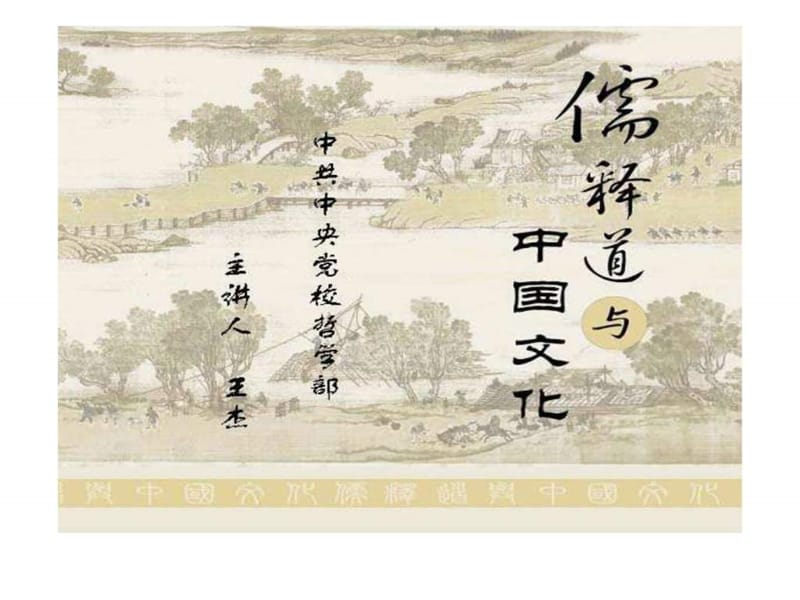 儒释道与
中国文化
中共中央党校哲学部
主讲人 王杰
與中國文化儒釋道與中國文化